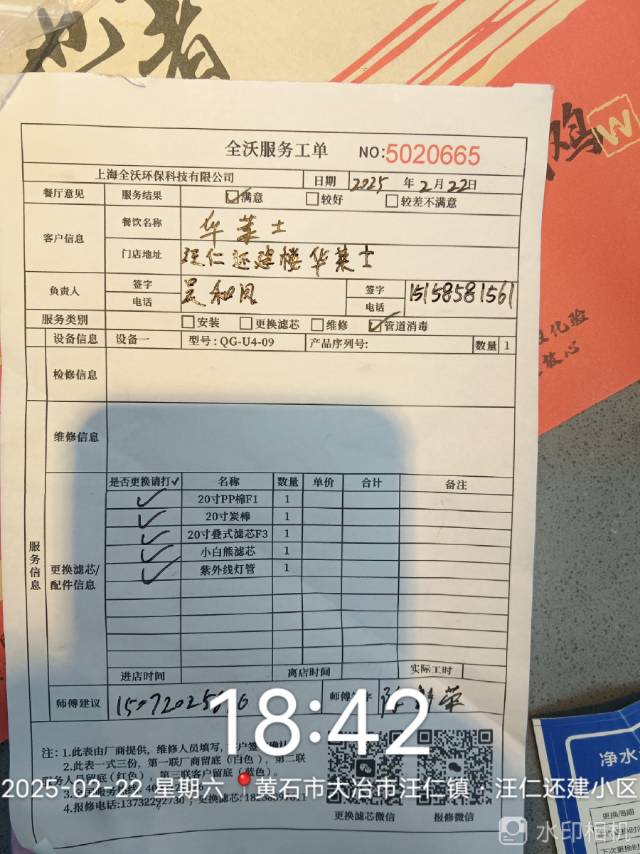 全沃服务工单 NO:5020665
上海全沃环保科技有限公司 日期 2025 年 2 月 22 日
餐厅意见 服务结果 满意 较好 较差不满意
客户信息 餐饮名称 华莱士
门店地址 汪仁还建楼华莱士
负责人 签字 签字
电话 电话 15158581561
服务类别 安装 更换滤芯 维修 管道消毒
设备信息 设备一 型号:QG-U4-09 产品序列号: 数量 1
检修信息
维修信息
服务信息
更换滤芯/配件信息
是否更换请打✓ 名称 数量 单价 合计 备注
✓ 20寸PP棉F1 1
✓ 20寸炭棒 1
✓ 20寸叠式滤芯F3 1
✓ 小白熊滤芯 1
✓ 紫外线灯管 1
进店时间 离店时间 实际工时
师傅建议 师傅签字
18:42
注:1.此表由厂商提供,维修人员填写,
2.此表一式三份,第一联厂商留底(白色),第二联
服务人员留底(红色),第三联客户留底(蓝色)。
2025-02-22 星期六 黄石市大冶市汪仁镇·汪仁还建小区
4.报修电话:13732292730 更换滤芯:
更换滤芯微信 报修微信
净水
更换日期
下次更换时
水印相机